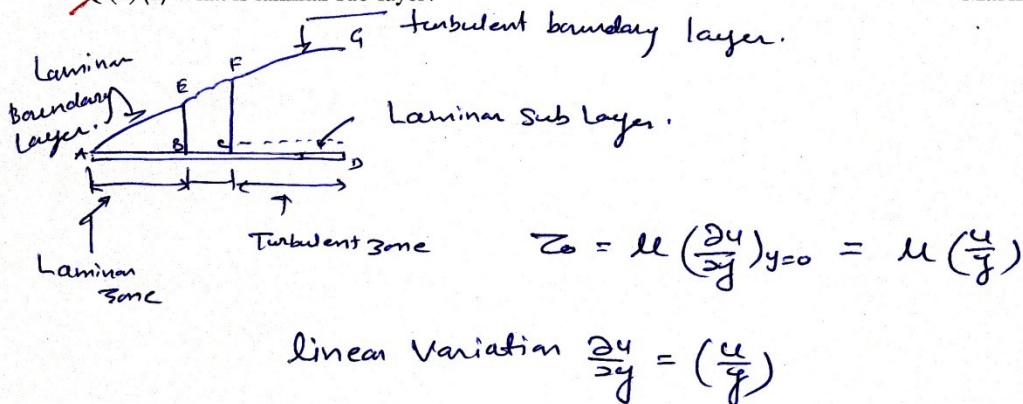 turbulent boundary layer.
G
Laminar
Boundary
Layer.
E
F
Laminar Sub Layer.
A
B
C
D
Turbulent zone
Laminar
zone
τo = μ (∂u/∂y)y=0 = μ (u/y)
linear Variation ∂u/∂y = (u/y)